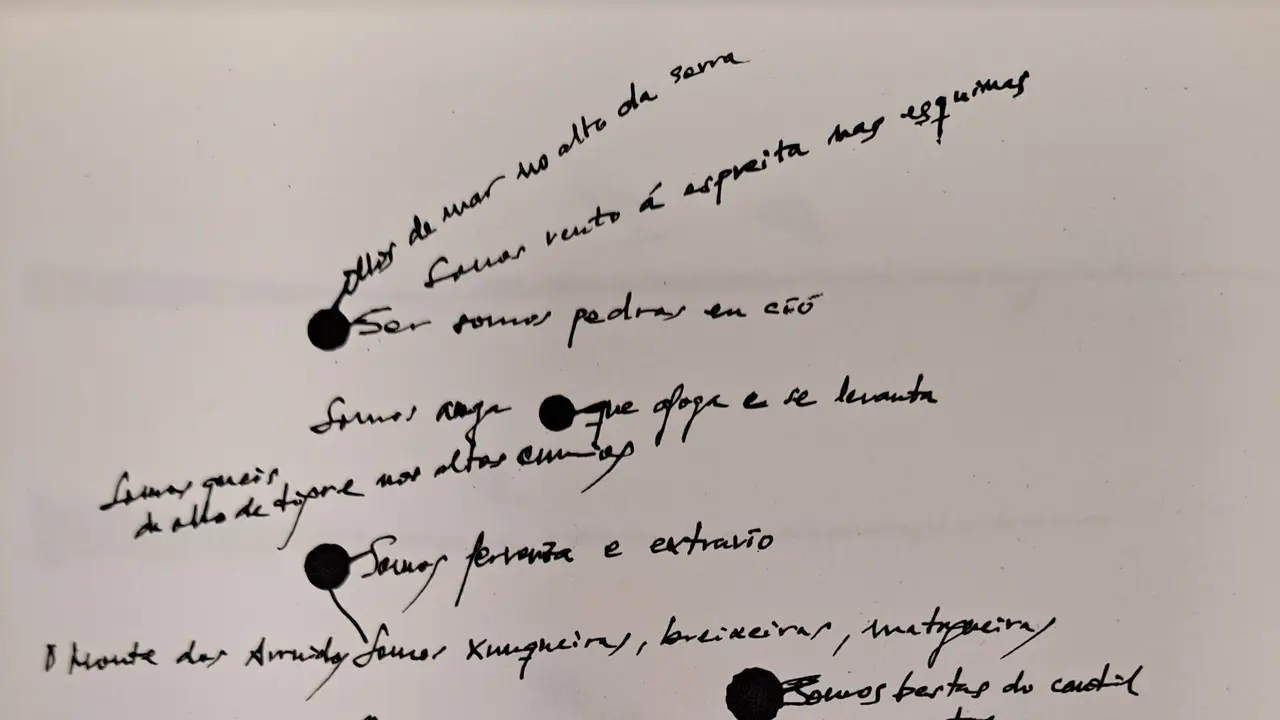 ollos de mar no alto da serra
Somos vento á espreita nas esquinas
Ser somos pedras en cio
Somos auga que afoga e se levanta
Somos queis
de alho de tigre nos altos cumios
Somos fervenza e extravío
O Monte das Arruidas Somos xunqueiras, breixeiras, matogueiras
Somos bestas do candil